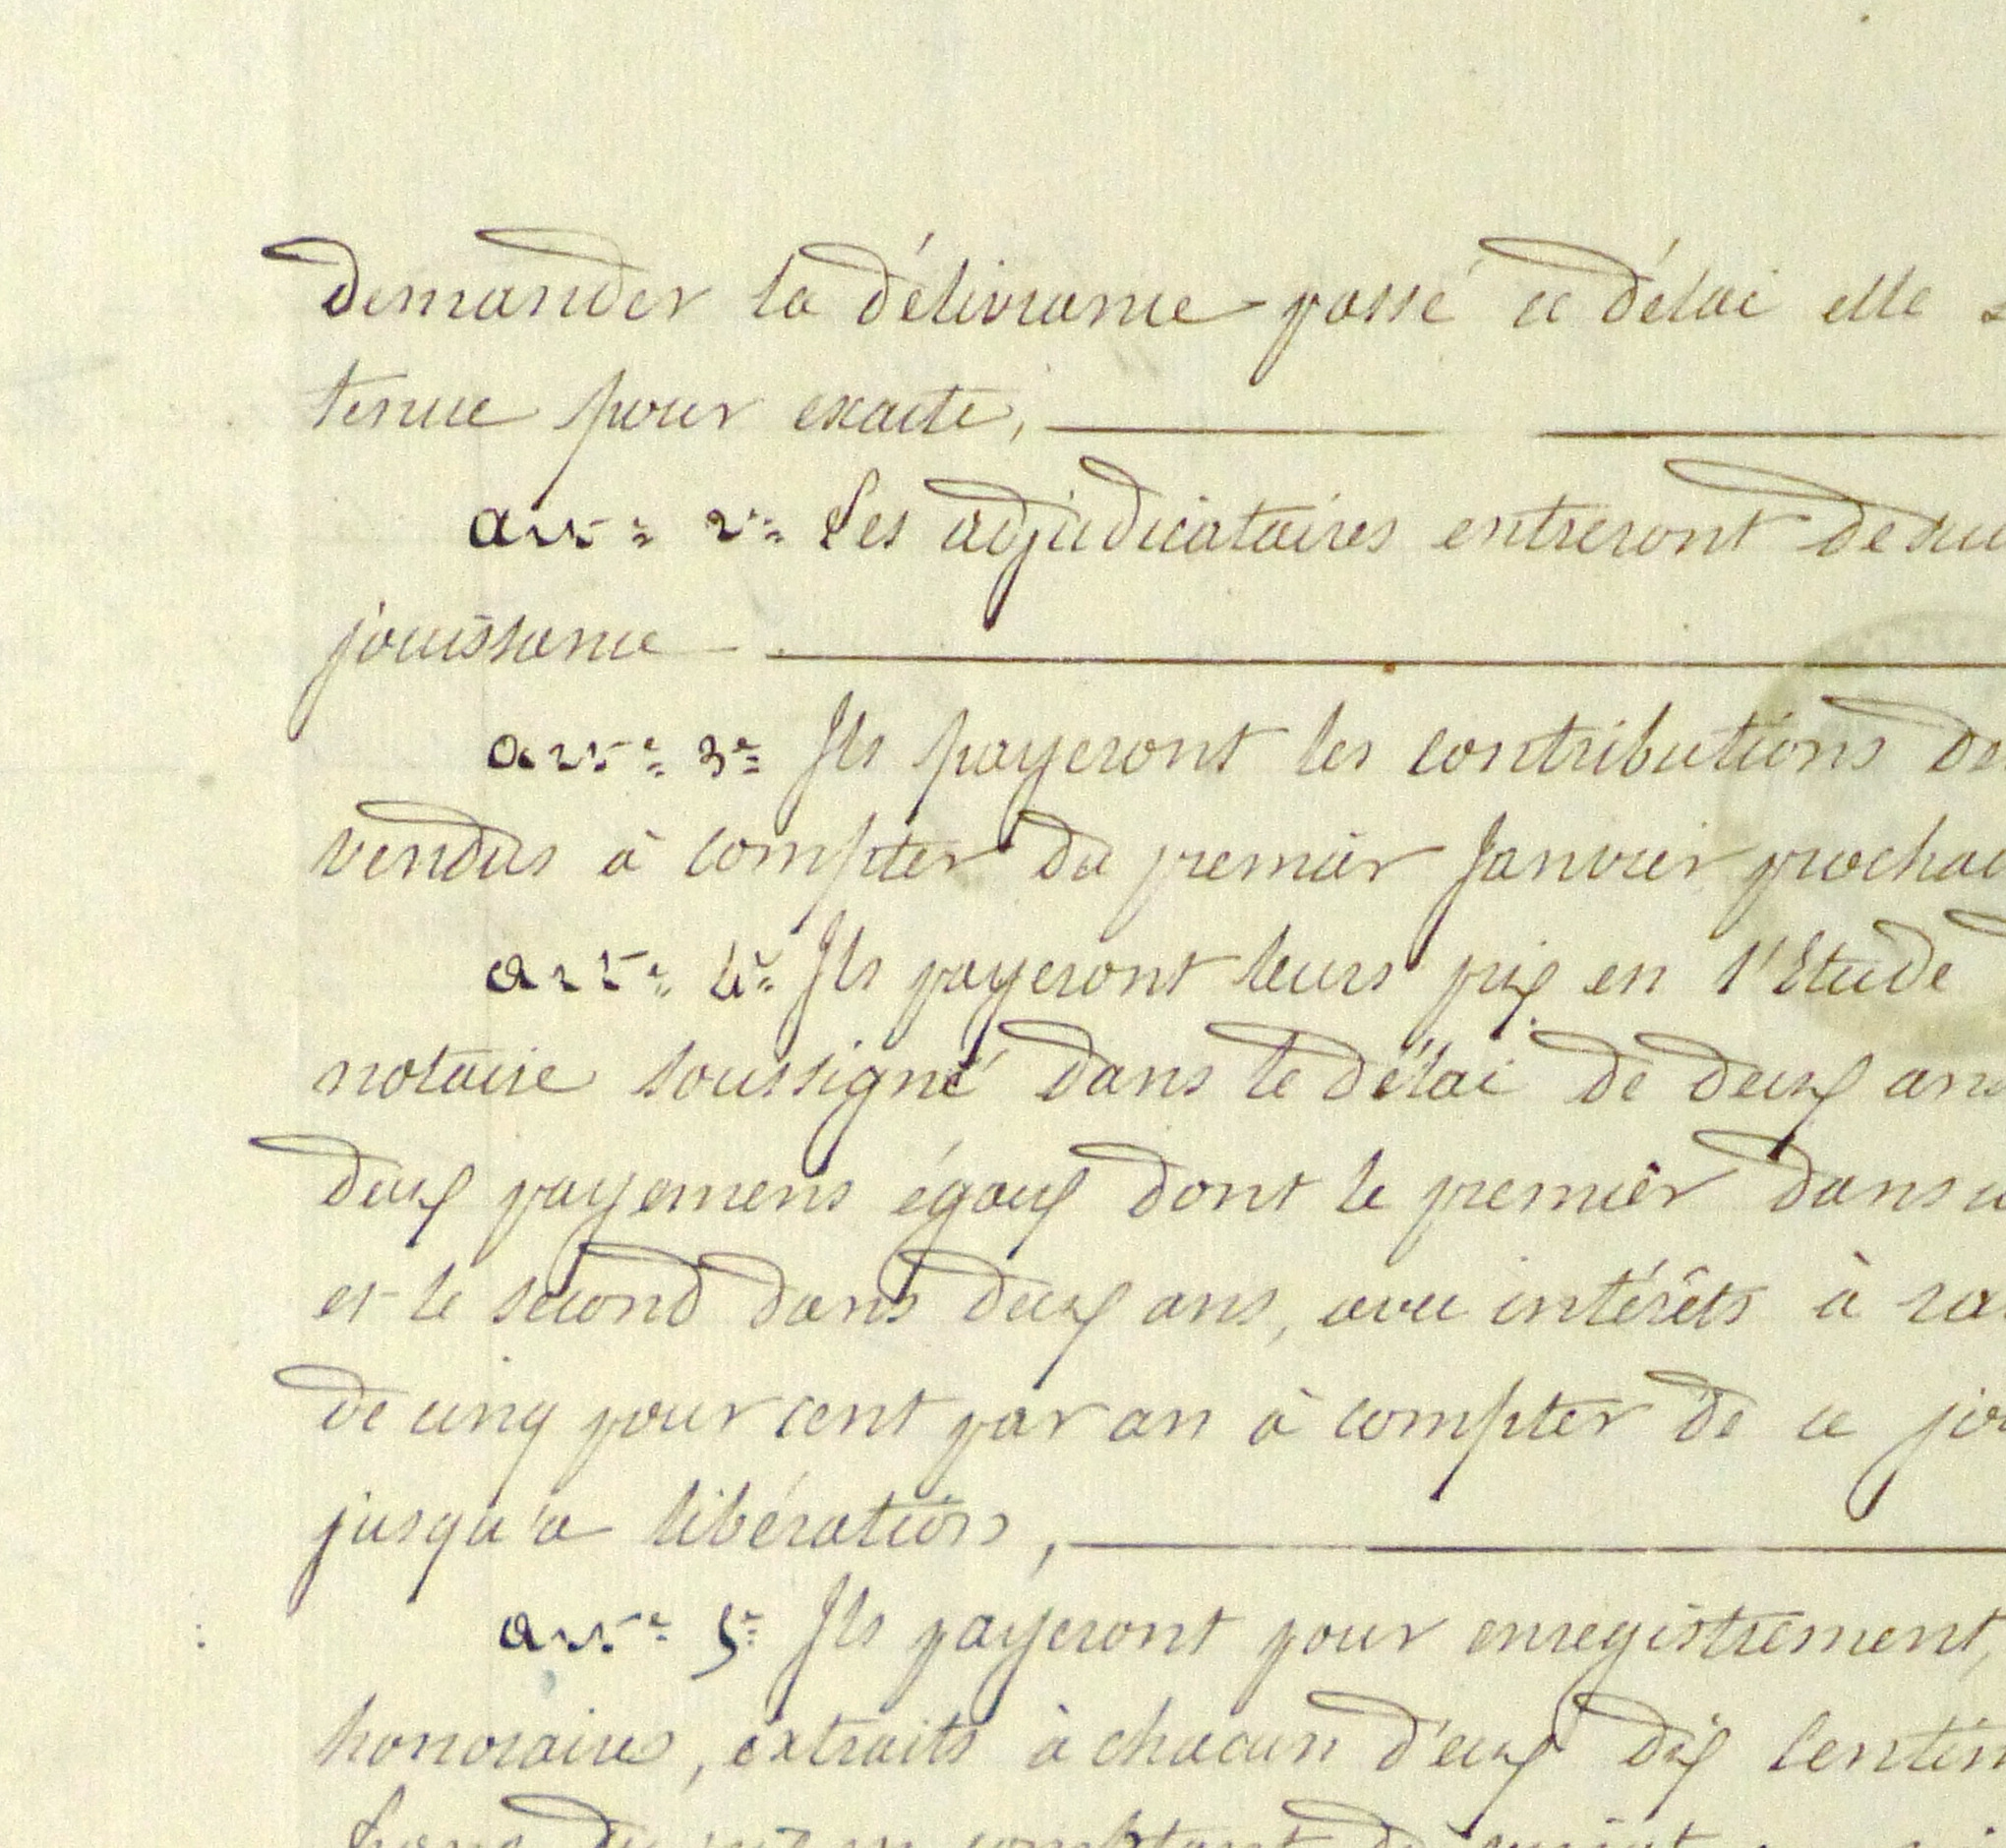 demander la délivrance passé ce délai elle s
tenue pour exacte,
art: 2e Les adjudicataires entreront de sui
jouissance
arte 3e Ils payeront les contributions de
vendus à compter du premier Janvier prochai
arte 4e Ils payeront leurs prix en l'Etude
notaire soussigné dans le délai de deux ans
deux payemens égaux dont le premier dans u
et le second dans deux ans, avec intérêts à ra
de cinq pour cent par an à compter de ce jou
jusqu'a libération,
arte 5e Ils payeront pour enregistrement,
honoraires, extraits à chacun d'eux dix centim